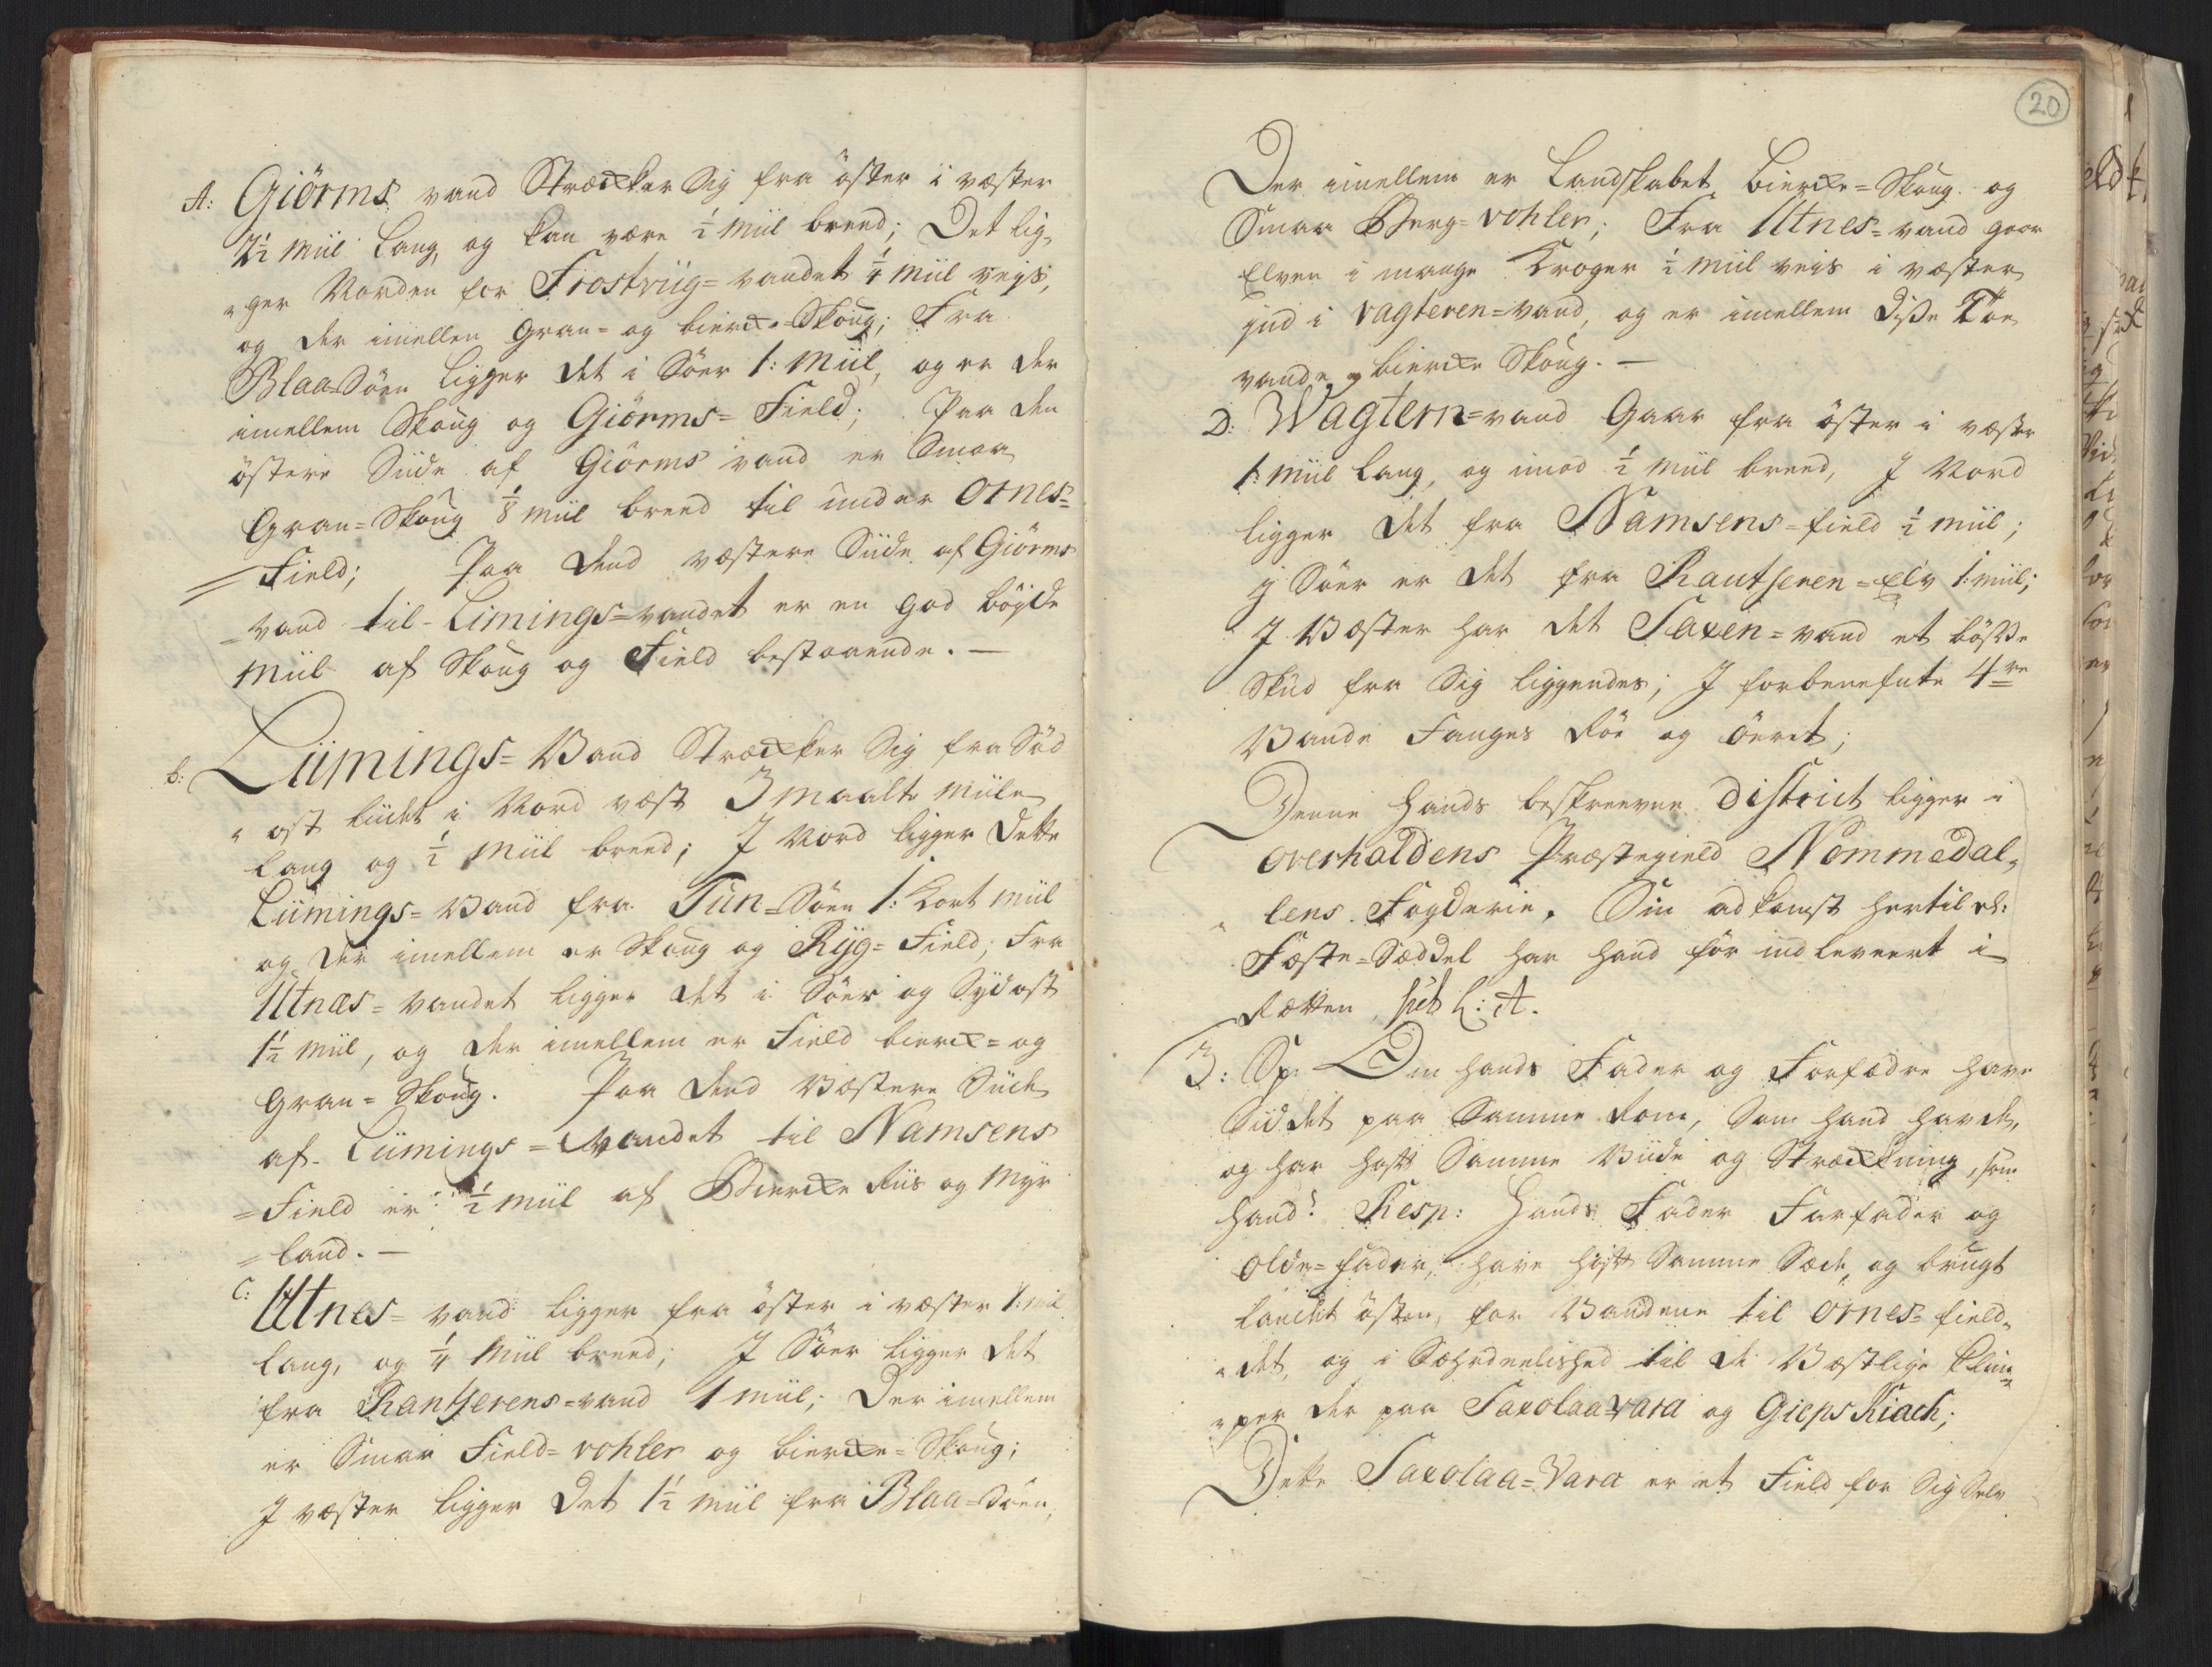 A: Giörms vand Strækker Sig fra öster i væster
2½ Miil lang, og kan være ½ Miil breed; Det lig-
„ger Norden for Frostviig=vandet ¼ Miil veys,
og der imellem gran= og bierke=Skoug; Fra
Blaa=Söen ligger det i Söer 1: Miil, og er der
imellem Skoug og Giörms=Field; Paa den
östere Siide af Giörms vand er Smaa
Gran=Skoug ⅛ Miil breed til under Ornes=
=Field; Paa dend væstere Siide af Giörms
=vand til Limings=vandet er en god böyde
Miil af Skoug og Field bestaaende. —
b: Liimings=Vand Strækker Sig fra Syd
„ost liidt i Nord væst 3 maalte Miile
lang og ½ Miil breed; J Nord ligger dette
Liimings=Vand fra Tun=Söen 1: kort Miil
og der imellem er Skoug og Ryg=Field; Fra
Utnæs=vandet ligger det i Söer og Sydost
1½ Miil, og der imellem er Field bierke= og
Gran=Skoug. Paa dend Væstere Siide
af Liimings=vandet til Namsens
=Field er ½ Miil af Bierke Riis og Myr
=land. —
C: Utnes=vand ligger fra öster i væster 1: Miil
lang, og ¼ Miil breed; J Söer ligger det
fra Rantserens=vand 1 Miil; Der imellem
er Smaa Field=vohler og bierke=Skoug;
J væster ligger det 1½ Miil fra Blaa=Söen,
20
Der imellem er Landskabet bierke=Skoug og
Smaa Berg=vohler; Fra Utnes=vand gaar
Elven i mange Kroger ½ Miil veis i væster
ind i vagteren=vand, og er imellem disse Toe
vande bierke Skoug. —
D: Wagtern=vand Gaar fra öster i væster
1: Miil lang, og imod ½ Miil breed, J Nord
ligger det fra Namsens=field ½ Miil;
J Söer er det fra Rautseren=Elv 1: Miil;
J Væster har det Saxen=vand et bösse
Skud fra Sig liggendes; J forbenefnte 4re
Vande Fanges Röe og öeret;
Denne hands beskreevne District ligger i
Overhaldens Præstegield Nommedal-
„lens Fogderie. Sin adkomst hertil
Fæste=Sæddel har hand för indleveert i
Rætten, sub L: A.
3: Sp: Om hands Fader og Forfædre have
Siddet paa Samme Rom, Som hand havde,
og har haft Samme Viide og Strækning, som
hand? Resp: Hands Fader Farfader og
Olde=fader, have haft Samme Sæde, og brugt
landet östen, for Vandene til Ornes=field-
„det, og i Særdeelished til de Væstlige Klim-
„per der paa Saxolaa=vara og Gieps Kiach;
Dette Saxolaa=Vara er et Field for Sig Selv